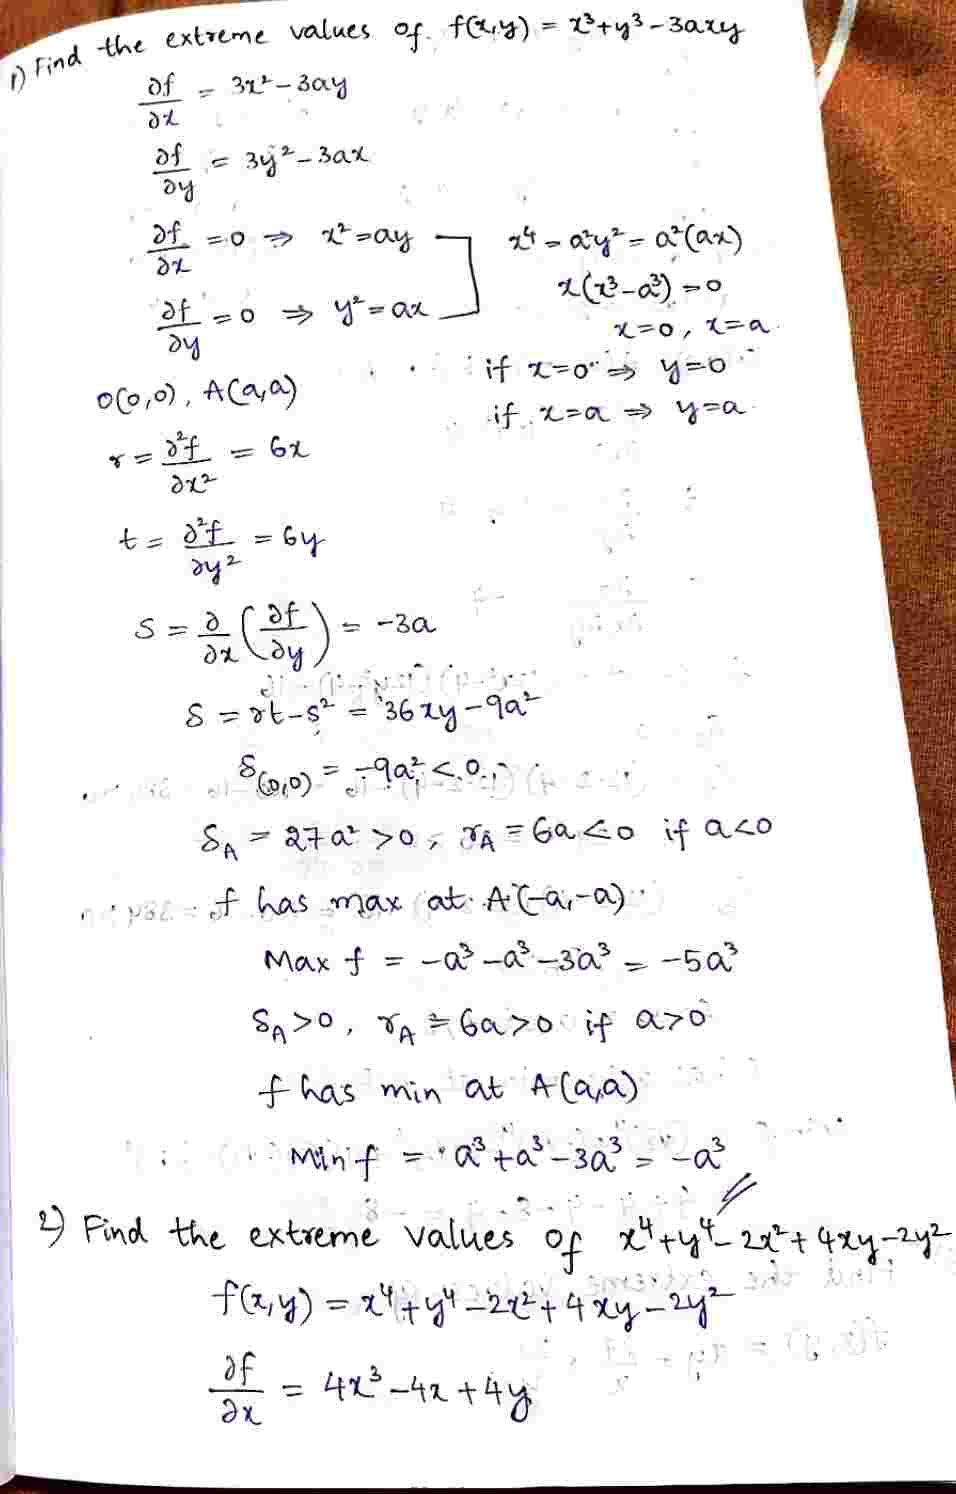 1) Find the extreme values of f(x,y) = x³+y³-3axy
∂f/∂x = 3x²-3ay
∂f/∂y = 3y²-3ax
∂f/∂x = 0 ⇒ x²=ay
x⁴ = a²y² = a²(ax)
x(x³-a³) = 0
∂f/∂y = 0 ⇒ y²=ax
x=0, x=a.
if x=0 ⇒ y=0
O(0,0), A(a,a)
if x=a ⇒ y=a.
r = ∂²f/∂x² = 6x
t = ∂²f/∂y² = 6y
S = ∂/∂x (∂f/∂y) = -3a
δ = rt-s² = 36xy-9a²
δ(0,0) = -9a² < 0
δ_A = 27a² > 0, r_A = 6a < 0 if a<0
f has max at A(-a,-a)
Max f = -a³-a³-3a³ = -5a³
δ_A > 0, r_A = 6a > 0 if a>0
f has min at A(a,a)
Min f = a³+a³-3a³ = -a³
2) Find the extreme values of x⁴+y⁴-2x²+4xy-2y²
f(x,y) = x⁴+y⁴-2x²+4xy-2y²
∂f/∂x = 4x³-4x+4y